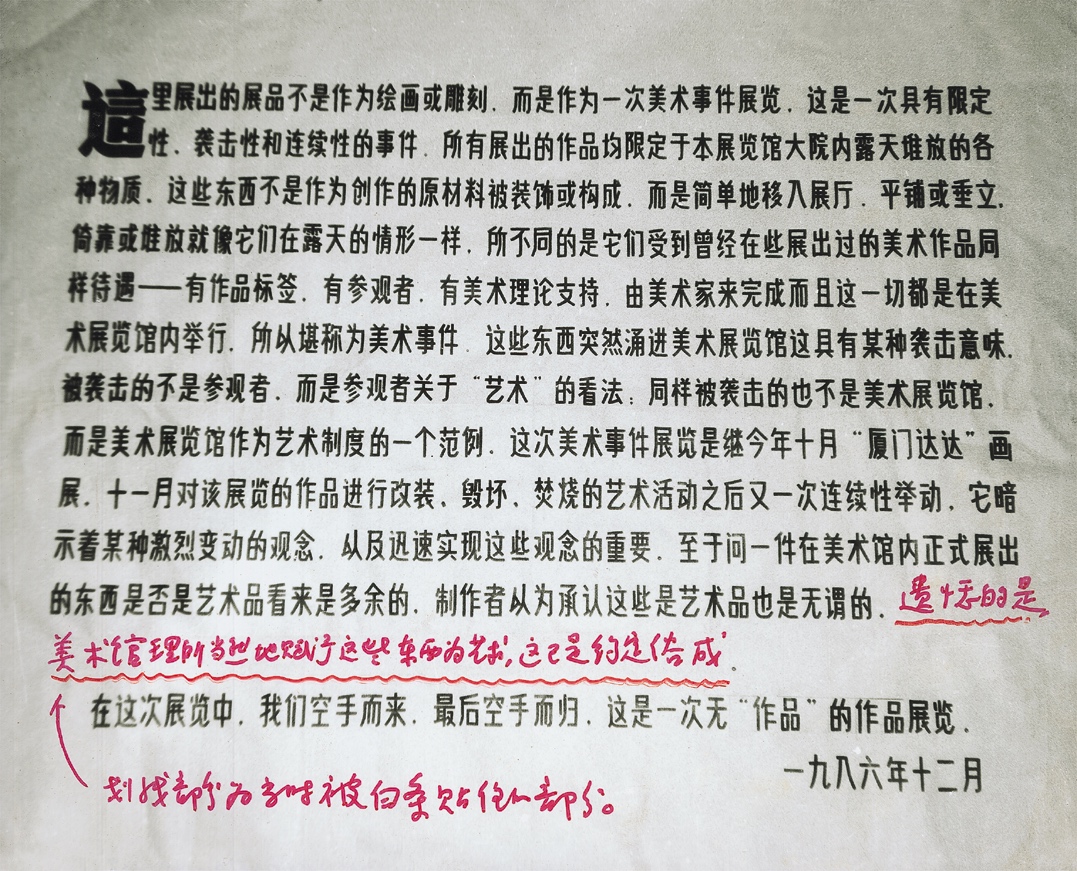 這里展出的展品不是作为绘画或雕刻．而是作为一次美术事件展览．这是一次具有限定
性、袭击性和连续性的事件．所有展出的作品均限定于本展览馆大院内露天堆放的各
种物质．这些东西不是作为创作的原材料被装饰或构成．而是简单地移入展厅．平铺或垂立．
倚靠或堆放就像它们在露天的情形一样．所不同的是它们受到曾经在些展出过的美术作品同
样待遇——有作品标签．有参观者．有美术理论支持．由美术家来完成而且这一切都是在美
术展览馆内举行．所从堪称为美术事件．这些东西突然涌进美术展览馆这具有某种袭击意味．
被袭击的不是参观者．而是参观者关于“艺术”的看法；同样被袭击的也不是美术展览馆．
而是美术展览馆作为艺术制度的一个范例．这次美术事件展览是继今年十月“厦门达达”画
展．十一月对该展览的作品进行改装、毁坏、焚烧的艺术活动之后又一次连续性举动．它暗
示着某种激烈变动的观念．从及迅速实现这些观念的重要．至于问一件在美术馆内正式展出
的东西是否是艺术品看来是多余的．制作者以为承认这些是艺术品也是无谓的．遗憾的是
美术馆理所当然地赋予这些东西为艺术，这已是约定俗成．
在这次展览中．我们空手而来．最后空手而归．这是一次无“作品”的作品展览．
一九八六年十二月
划线部分为当时被白条贴住的部分。